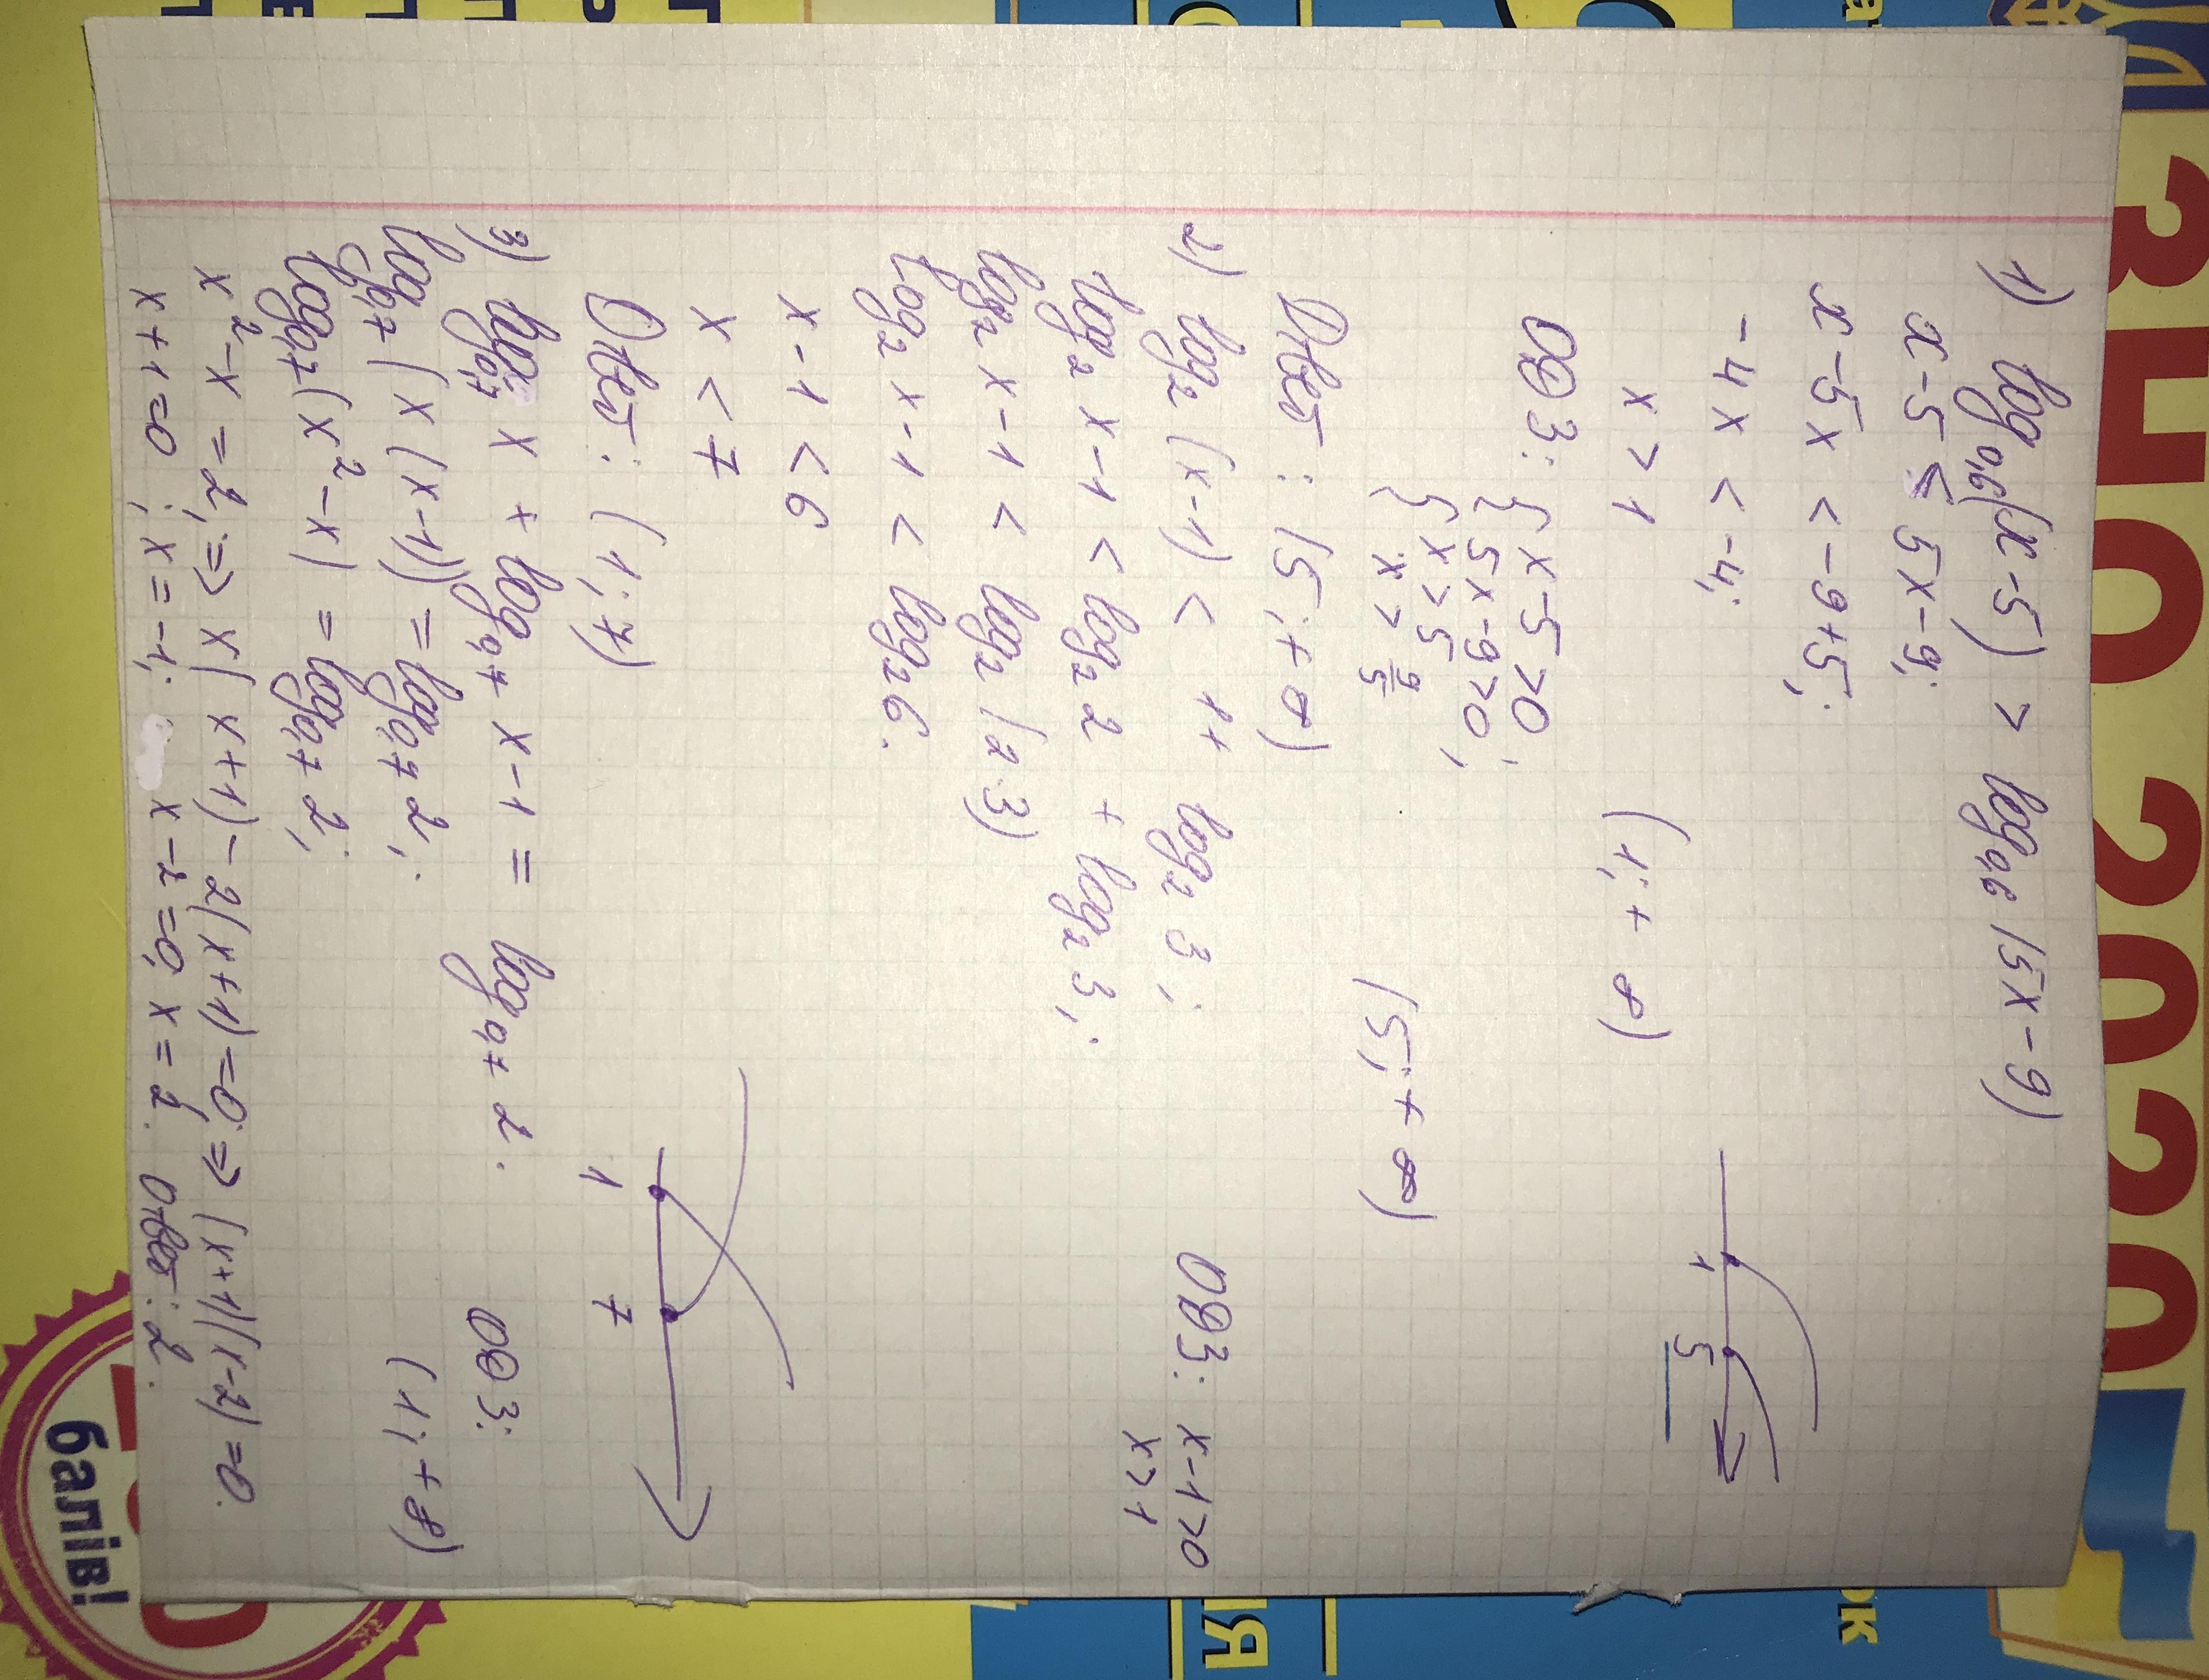 1) log₀,₆(x-5) > log₀,₆(5x-9)
x-5 < 5x-9;
x-5x < -9+5;
-4x < -4;
x > 1 (1; +∞)
1 5
ОДЗ: { x-5>0;
5x-9>0;
{ x>5
x > 9/5 (5; +∞)
Ответ: (5; +∞)
2) log₂(x-1) < 1+ log₂3; ОДЗ: x-1>0
x>1
log₂ x-1 < log₂2 + log₂3;
log₂ x-1 < log₂(2·3)
log₂ x-1 < log₂6.
x-1 < 6
x < 7
1 7
Ответ: (1; 7)
3) log₀,₇ x + log₀,₇ x-1 = log₀,₇ 2. ОДЗ:
(1; +∞)
log₀,₇(x(x-1)) = log₀,₇ 2;
log₀,₇(x²-x) = log₀,₇ 2;
x²-x = 2; => x(x+1)-2(x+1)=0. => (x+1)(x-2)=0.
x+1=0; x=-1; x-2=0, x=2. Ответ: 2.
ЗНО 2020
балів!